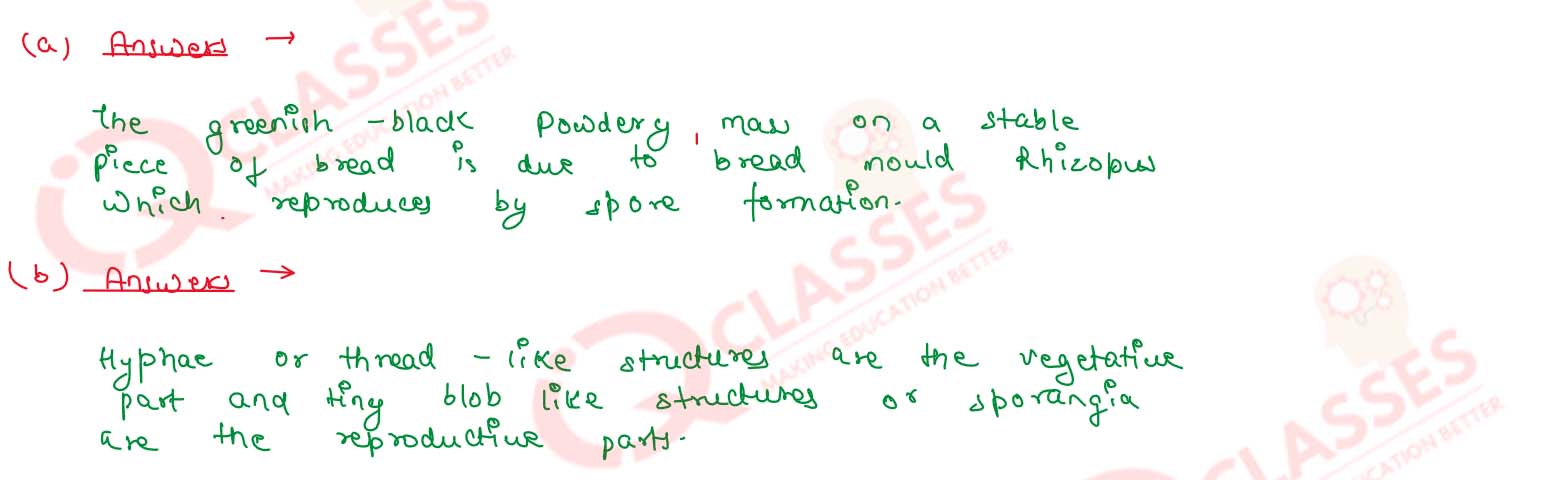 (a) Answers →
The greenish - black Powdery, mass on a stable
piece of bread is due to bread mould Rhizopus
which reproduces by spore formation.
(b) Answers →
Hyphae or thread - like structures are the vegetative
part and tiny blob like structures or sporangia
are the reproductive parts.
IQ CLASSES
MAKING EDUCATION BETTER
IQ CLASSES
MAKING EDUCATION BETTER
CLASSES
CATION BETTER